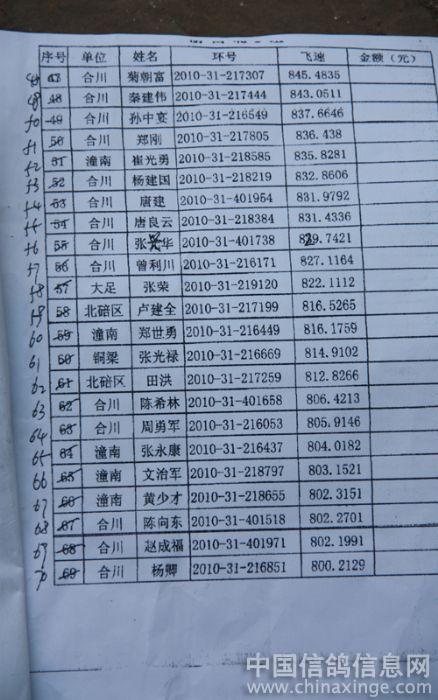 序号 单位 姓名 环号 飞速 金额(元)
47 合川 菊朝富 2010-31-217307 845.4835
49 48 合川 秦建伟 2010-31-217444 843.0511
50 49 合川 孙中宴 2010-31-216549 837.6646
51 50 合川 郑刚 2010-31-217805 836.438
52 51 潼南 崔光勇 2010-31-218585 835.8281
53 52 合川 杨建国 2010-31-218219 832.8606
54 53 合川 唐建 2010-31-401954 831.9792
55 54 合川 唐良云 2010-31-218384 831.4336
56 55 合川 张华 2010-31-401738 829.7421
57 56 合川 曾利川 2010-31-216171 827.1164
58 57 大足 张荣 2010-31-219120 822.1112
59 58 北碚区 卢建全 2010-31-217199 816.5265
60 59 潼南 郑世勇 2010-31-216449 816.1759
61 60 铜梁 张光禄 2010-31-216669 814.9102
62 61 北碚区 田洪 2010-31-217259 812.8266
63 62 合川 陈希林 2010-31-401658 806.4213
64 63 合川 周勇军 2010-31-216053 805.9146
65 64 潼南 张永康 2010-31-216437 804.0182
66 65 潼南 文治军 2010-31-218797 803.1521
67 66 潼南 黄少才 2010-31-218655 802.3151
68 67 合川 陈向东 2010-31-401518 802.2701
69 68 合川 赵成福 2010-31-401971 802.1991
70 69 合川 杨卿 2010-31-216851 800.2129
中国信鸽信息网
www.chinaxinge.com